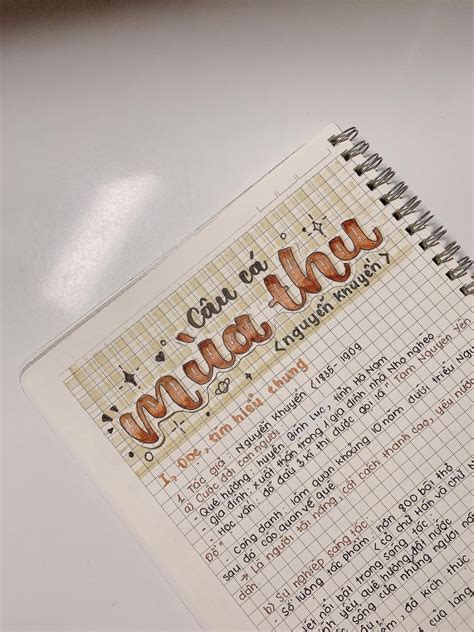 Câu cá
mùa thu
< nguyễn khuyến >
I, Đọc, tìm hiểu chung
1. Tác giả: Nguyễn Khuyến < 1835 - 1909
a) Cuộc đời, con người
- Quê hương: huyện Bình Lục, tỉnh Hà Nam
- gia đình: Xuất thân trong 1 gia đình nhà Nho nghèo
- Học vấn: đỗ đầu 3 kì thi được gọi là " Tam Nguyên Yên
Đổ "
- Công danh: làm quan khoảng 10 năm dưới triều
sau đó cáo quan về quê
→ Là người tài năng, cốt cách thanh cao, yêu
dân
b) Sự nghiệp sáng tác
- Số lượng tác phẩm: hơn 800 bài thơ
< cả chữ Hán và chữ
nổi bật trong sáng tác
tình yêu quê hương đất nước
sống của những người
đả kích
của làng